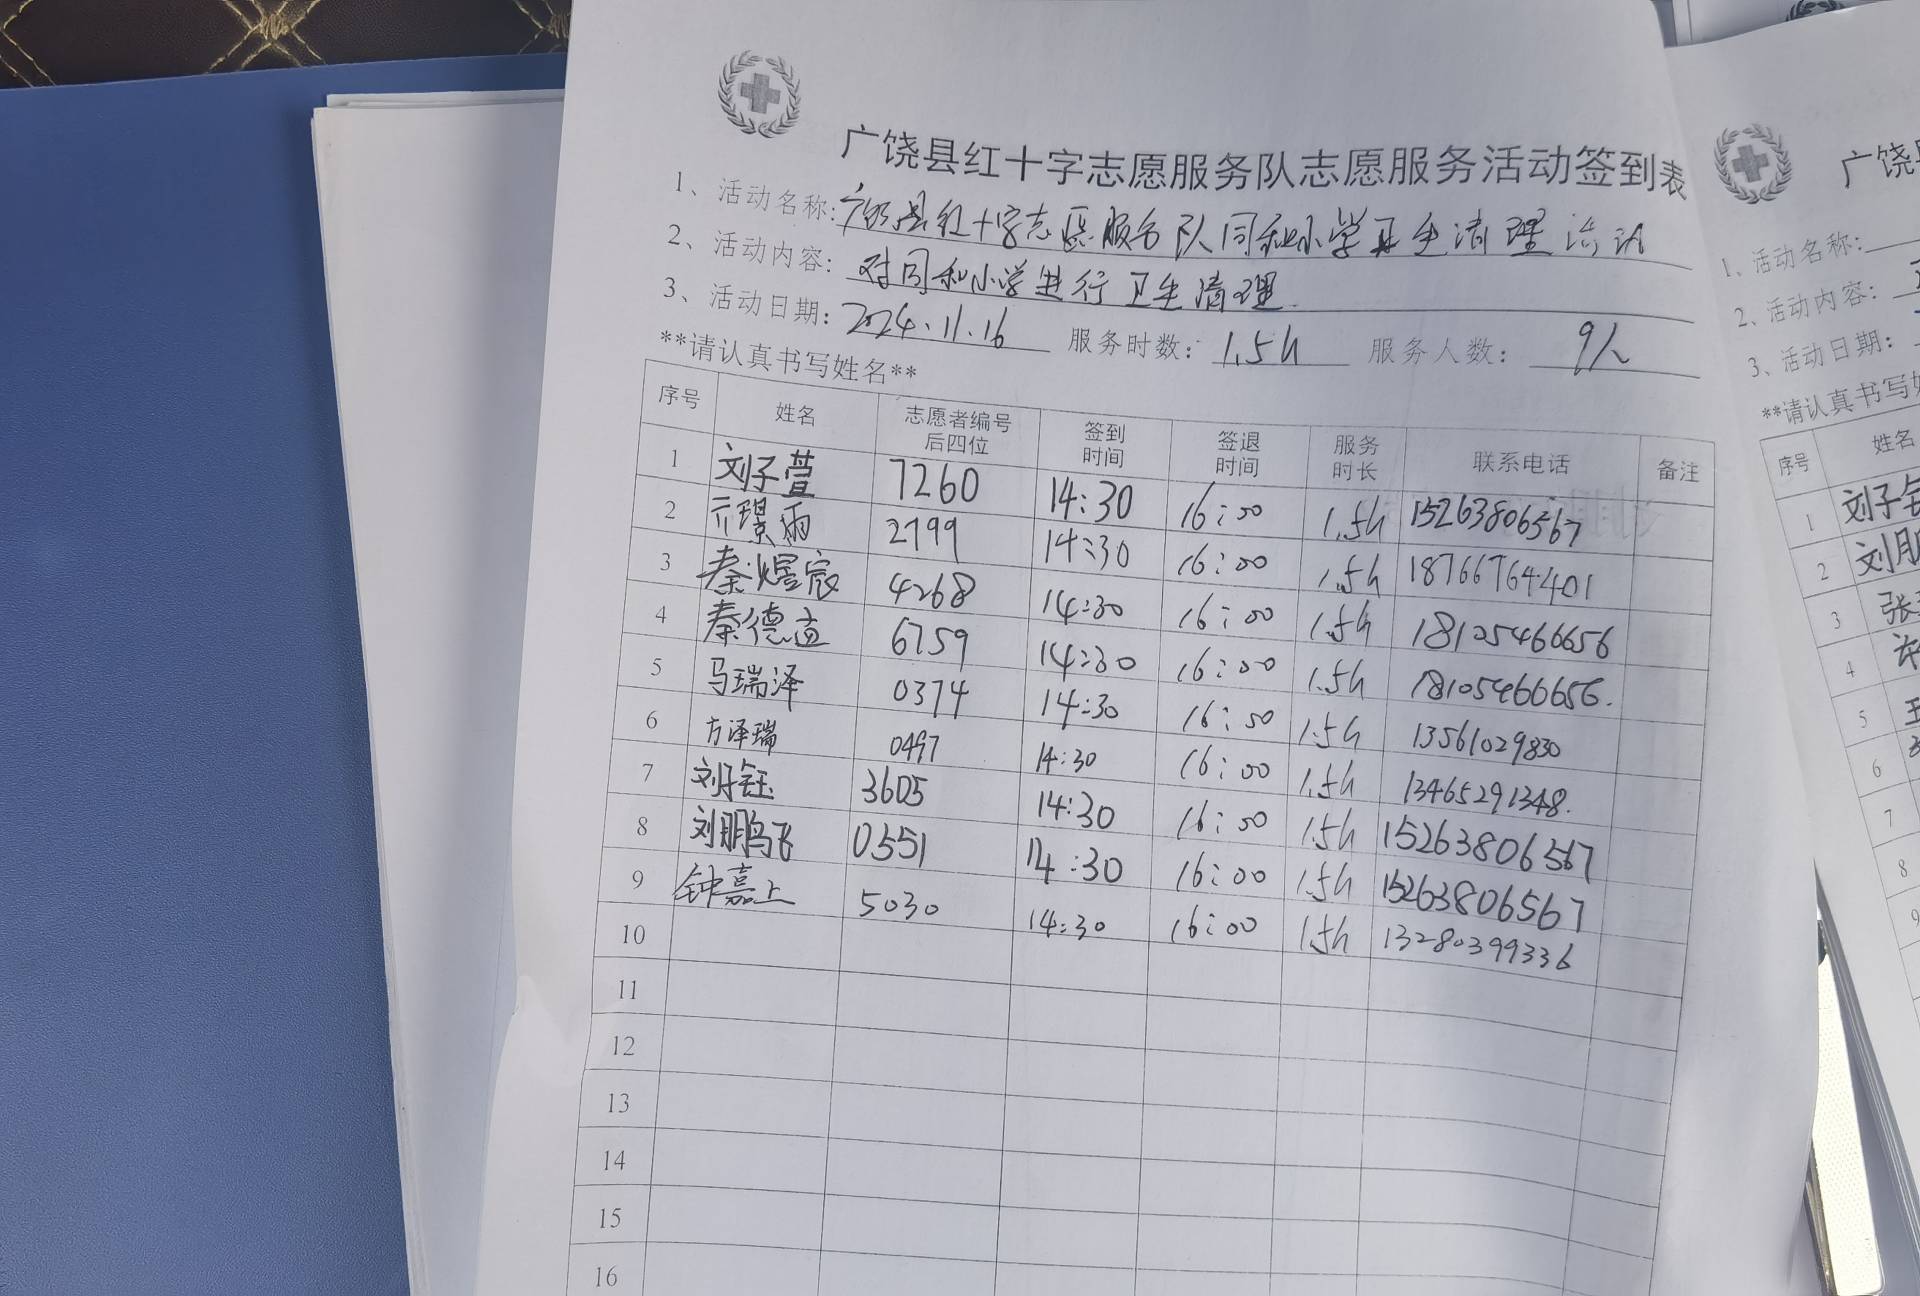 广饶县红十字志愿服务队志愿服务活动签到表
1、活动名称:广饶县红十字志愿服务队同和小学卫生清理活动
2、活动内容:对同和小学进行卫生清理.
3、活动日期:2024.11.16 服务时数:1.5h 服务人数:9人
**请认真书写姓名**
序号 姓名 志愿者编号后四位 签到时间 签退时间 服务时长 联系电话 备注
1 刘子萱 7260 14:30 16:00 1.5h 15263806567
2 亓璟雨 2799 14:30 16:00 1.5h 18766764401
3 秦煜宸 4268 14:30 16:00 1.5h 18105466656
4 秦德益 6759 14:30 16:00 1.5h 18105466656.
5 马瑞泽 0374 14:30 16:00 1.5h 13561029830
6 方泽瑞 0497 14:30 16:00 1.5h 13465291348.
7 刘子钰 3605 14:30 16:00 1.5h 15263806567
8 刘鹏飞 0551 14:30 16:00 1.5h 15263806567
9 钟嘉上 5030 14:30 16:00 1.5h 13280399336
10
11
12
13
14
15
16
广饶
1、活动名称:
2、活动内容:
3、活动日期:
**请认真书写
序号 姓名
1 刘子
2 刘
3 张
4 许
5 王
6
7
8
9